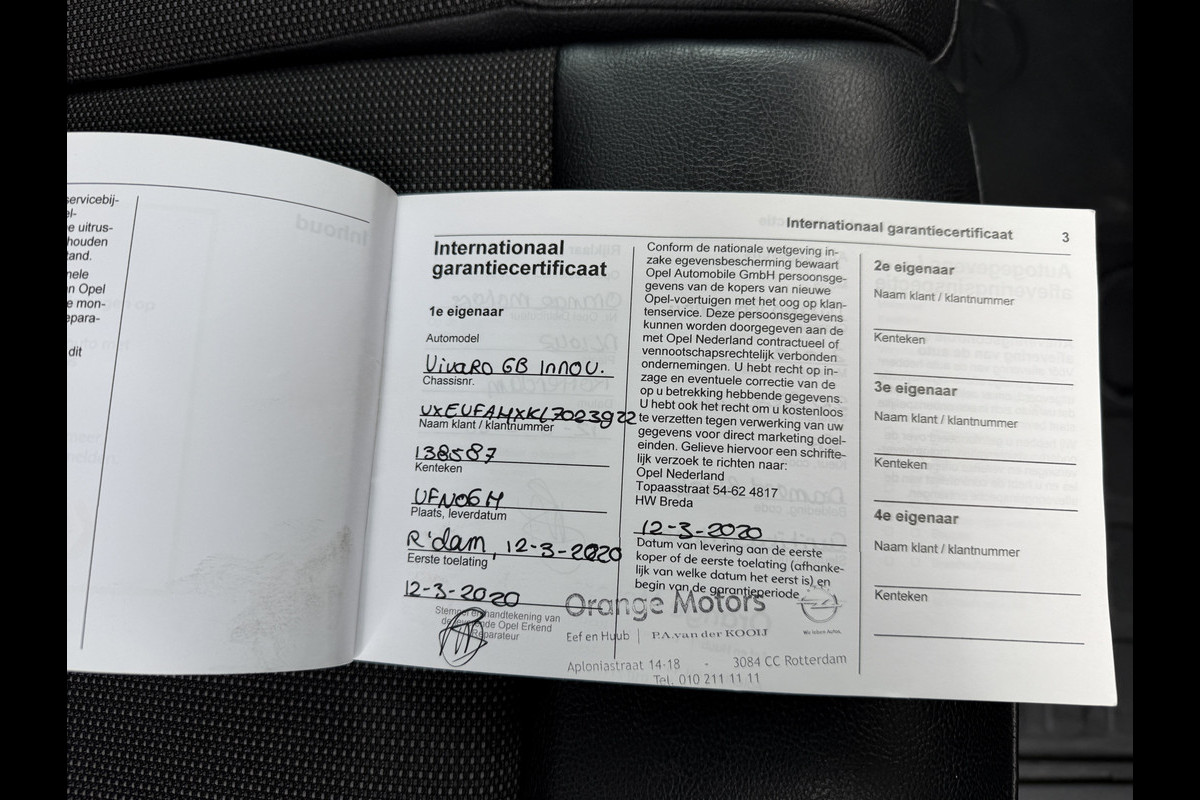 servicebij-
el-
e uitrus-
houden
tand.
nele
n Opel
e mon-
epara-
dit
Inhoud
Internationaal garantiecertificaat 3
Internationaal
garantiecertificaat
1e eigenaar
Automodel
Vivaro GB Innov.
Chassisnr.
Naam klant / klantnummer
138587
Kenteken
VFN06H
Plaats, leverdatum
R'dam, 12-3-2020
Eerste toelating
12-3-2020
Stempel en handtekening van
de leverende Opel Erkend
Reparateur
Conform de nationale wetgeving in-
zake egevensbescherming bewaart
Opel Automobile GmbH persoonsge-
gevens van de kopers van nieuwe
Opel-voertuigen met het oog op klan-
tenservice. Deze persoonsgegevens
kunnen worden doorgegeven aan de
met Opel Nederland contractueel of
vennootschapsrechtelijk verbonden
ondernemingen. U hebt recht op in-
zage en eventuele correctie van de
op u betrekking hebbende gegevens.
U hebt ook het recht om u kostenloos
te verzetten tegen verwerking van uw
gegevens voor direct marketing doel-
einden. Gelieve hiervoor een schrifte-
lijk verzoek te richten naar:
Opel Nederland
Topaasstraat 54-62 4817
HW Breda
12-3-2020
Datum van levering aan de eerste
koper of de eerste toelating (afhanke-
lijk van welke datum het eerst is) en
begin van de garantieperiode
Orange Motors
Eef en Huub | P.A. van der KOOIJ
Wir leben Autos.
Aploniastraat 14-18 - 3084 CC Rotterdam
Tel. 010 211 11 11
2e eigenaar
Naam klant / klantnummer
Kenteken
3e eigenaar
Naam klant / klantnummer
Kenteken
4e eigenaar
Naam klant / klantnummer
Kenteken